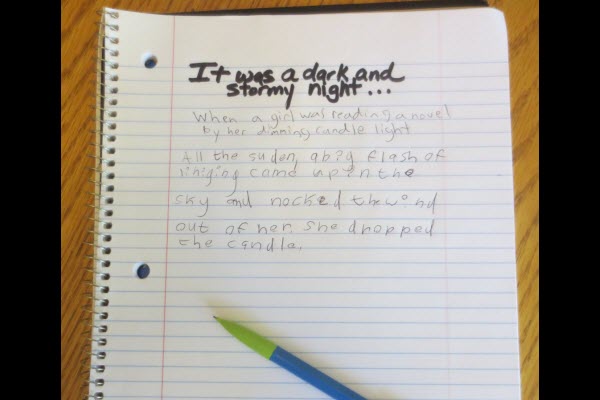 It was a dark and
stormy night...
When a girl was reading a novel
by her dimming candle light
All the suden, a big flash of
came up in the
sky and nocked the wind
out of her. She dropped
the candle.